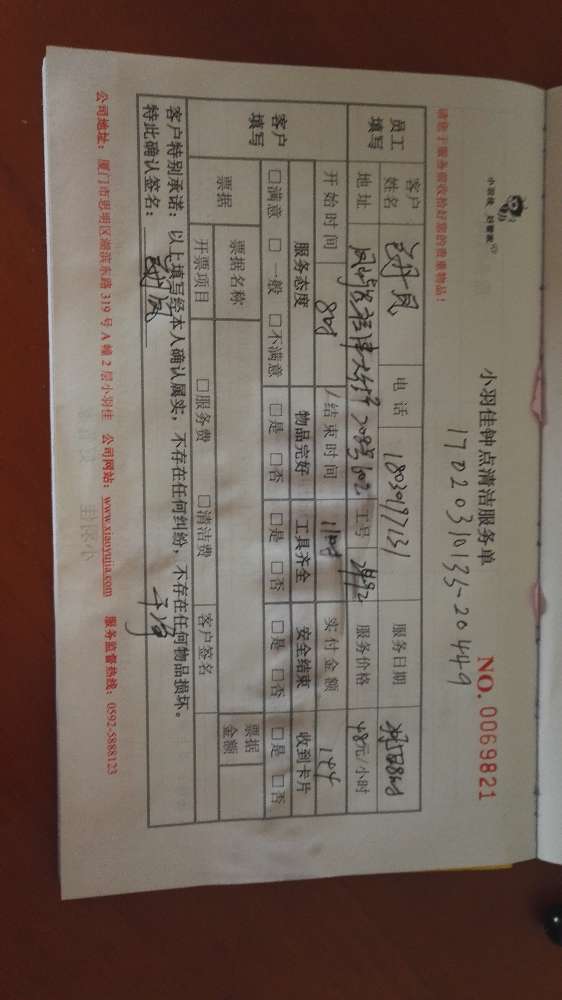 小羽佳钟点清洁服务单
NO. 0069821
170203101335-20449
请您于服务前收拾好您的贵重物品！
员工填写
客户姓名
电话 18030197131
服务日期
地址
工号
服务价格 48元/小时
开始时间 8时
结束时间 11时
实付金额 144
客户填写
服务态度 物品完好 工具齐全 安全结束 收到卡片
□满意 □一般 □不满意 □是 □否 □是 □否 □是 □否 □是 □否
票据
票据名称
票据金额
开票项目 □服务费 □清洁费 客户签名
客户特别承诺：以上填写经本人确认属实，不存在任何纠纷，不存在任何物品损坏。
特此确认签名：
公司地址：厦门市思明区湖滨东路 319 号 A 幢 2 层小羽佳 公司网站：www.xiaoyujia.com 服务监督热线：0592-5888123